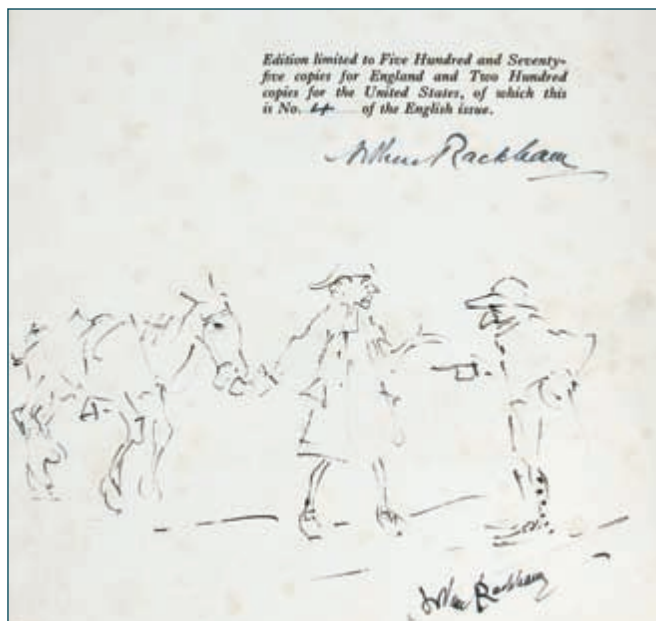 Edition limited to Five Hundred and Seventy-
five copies for England and Two Hundred
copies for the United States, of which this
is No. 4 of the English issue.
Arthur Rackham
Arthur Rackham